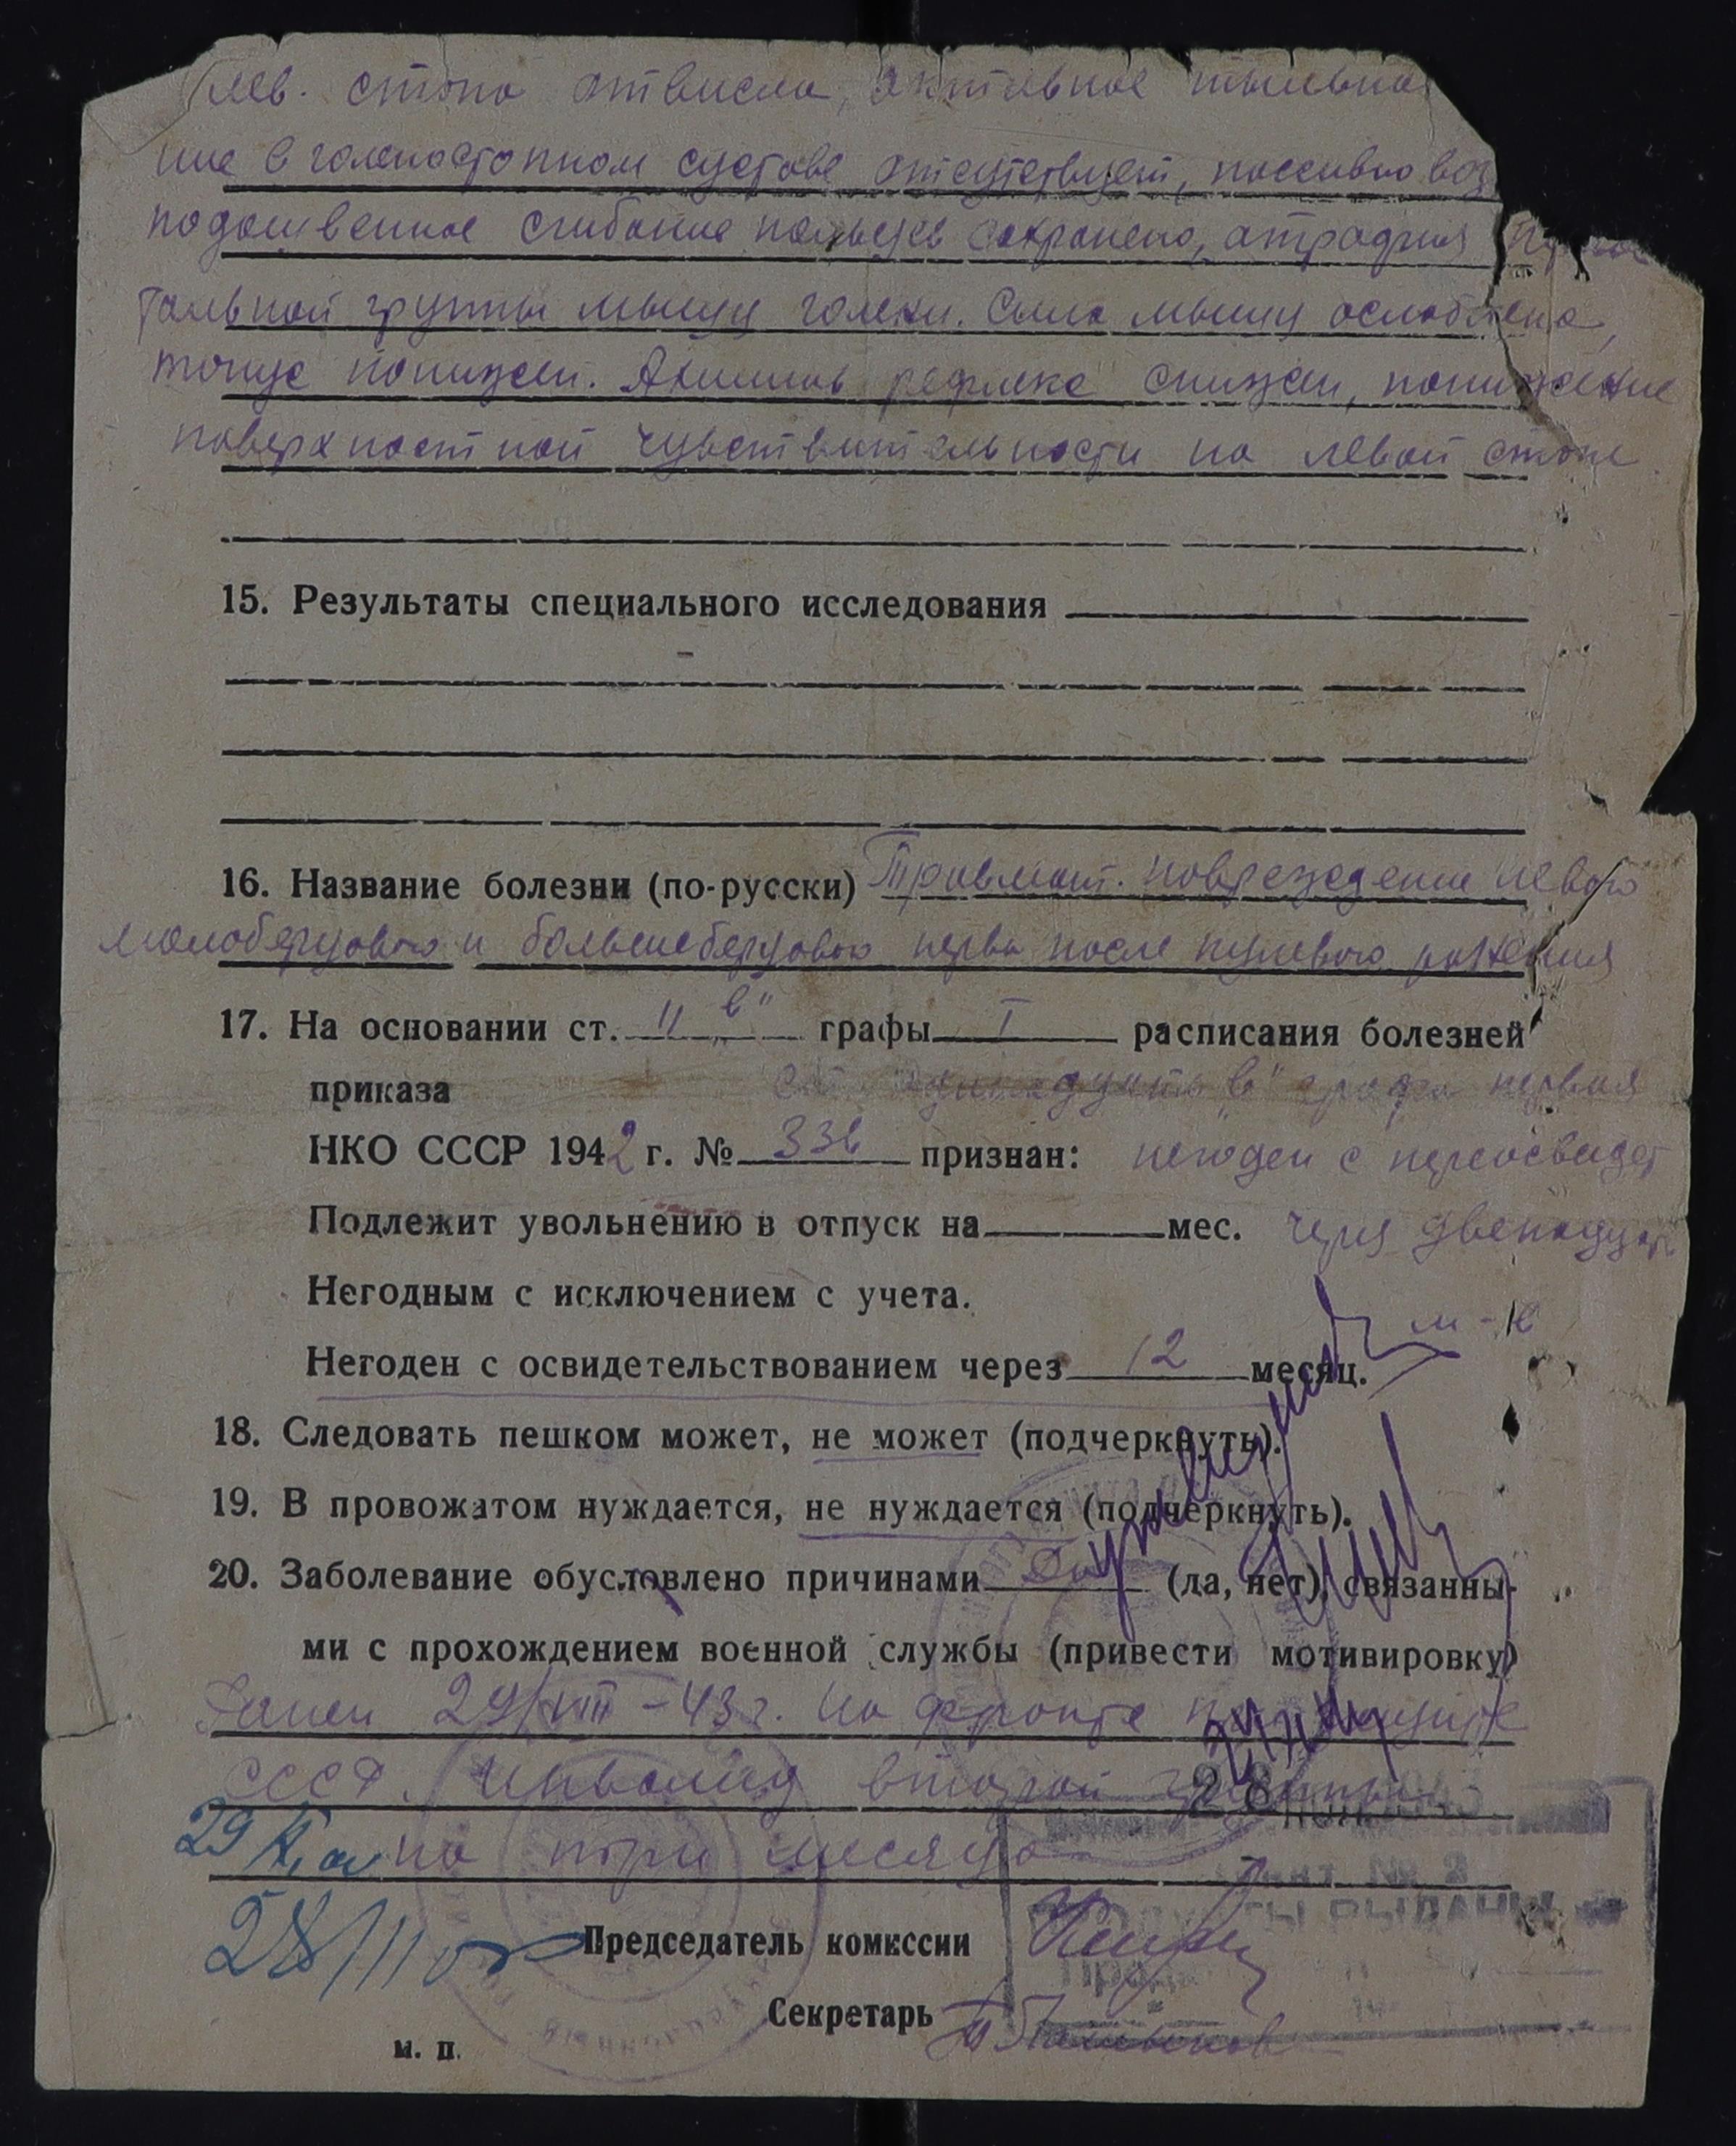 лев. стопа отвисла, активное тыльное
ние в голеностопном суставе отсутствует, пассивно воз
подошвенное сгибание пальцев сохранено, атрофия
тальной группы мышц голени. Сила мышц ослаблена,
тонус понижен. Ахиллов рефлекс снижен, понижение
поверхностной чувствительности на левой стопе
15. Результаты специального исследования
16. Название болезни (по-русски) Травмат. повреждение левого
малоберцового и большеберцового нерва после пулевого ранения
17. На основании ст. 11 „в" графы I расписания болезней
приказа ст. одинадцать „в" графа первая
НКО СССР 1942 г. № 336 признан: негоден с переосвидет
Подлежит увольнению в отпуск на мес. через двенадцать
Негодным с исключением с учета. м-в
Негоден с освидетельствованием через 12 месяц.
18. Следовать пешком может, не может (подчеркнуть).
19. В провожатом нуждается, не нуждается (подчеркнуть).
20. Заболевание обусловлено причинами Да (да, нет), связанны-
ми с прохождением военной службы (привести мотивировку)
Ранен 29/VIII-43г. на фронте по защите
СССР. Инвалид второй группы
29 на три месяца
28/II
Председатель комиссии
Секретарь
м. п.